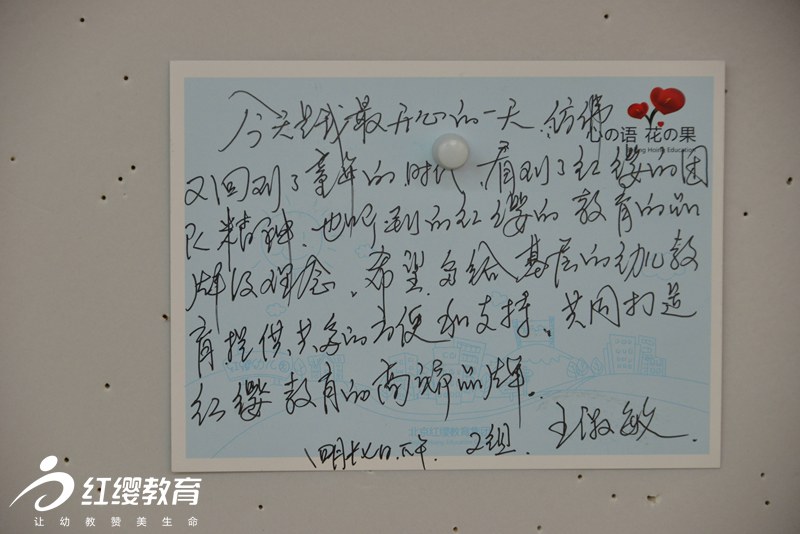 今天是我最开心的一天,仿佛
の语 花の果
又回到了童年的时代,看到了红缨的团
队精神,也听到的红缨的教育的品
牌及理念。希望多给基层的幼儿教
育提供更多的方便和支持。共同打造
红缨教育的高端品牌。
四月十七日.下午. 2组. 王淑敏.
红缨教育
让幼教赞美生命